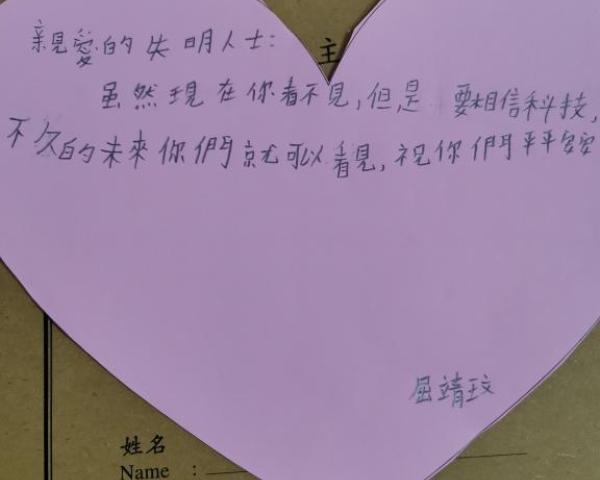 親愛的失明人士:
主
虽然現在你看不見,但是要相信科技,
不久的未來你們就可以看見,祝你們平平安安
屈靖玟
姓名
Name :